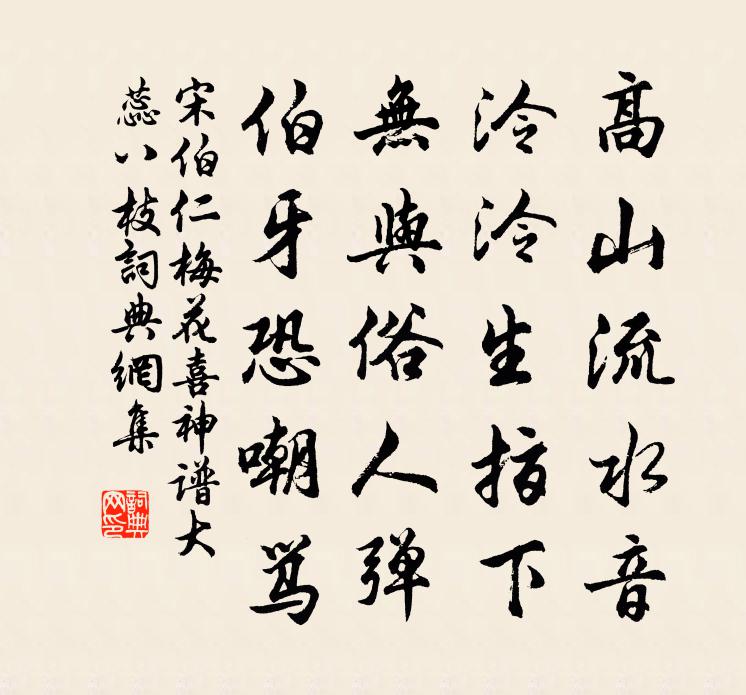 高山流水音
泠泠生指下
無與俗人彈
伯牙恐嘲骂
宋伯仁梅花喜神谱大
蕊八枝詞典網集
詞典網印